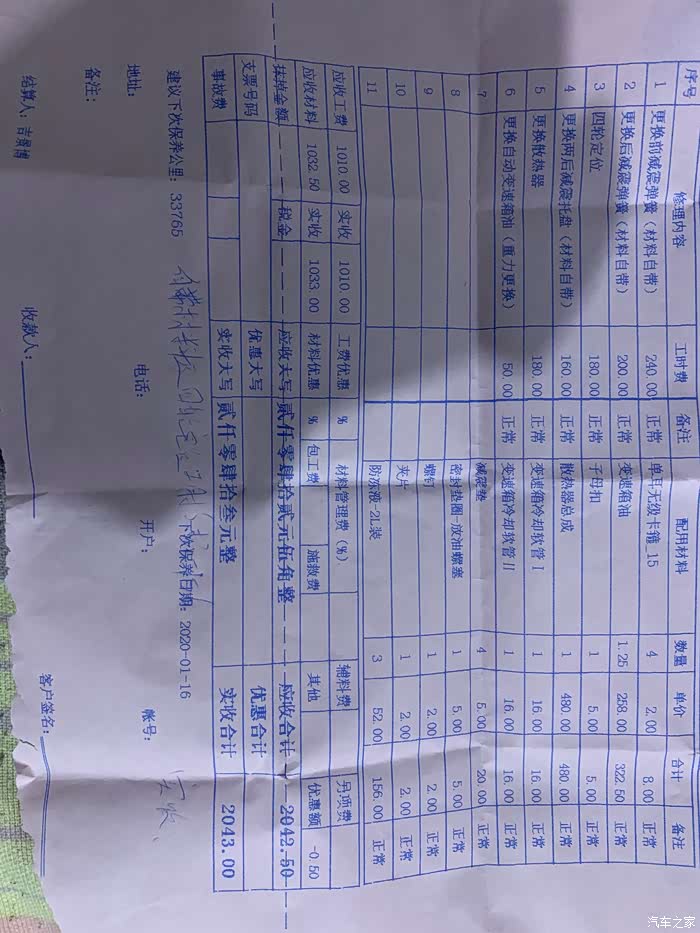 序号 修理内容 工时费 备注 配用材料 数量 单价 合计 备注
1 更换前减震弹簧(材料自带) 240.00 正常 单耳无级卡箍_15 4 2.00 8.00 正常
2 更换后减震弹簧(材料自带) 200.00 正常 变速箱油 1.25 258.00 322.50 正常
3 四轮定位 180.00 正常 子母扣 1 5.00 5.00 正常
4 更换两后减震托盘(材料自带) 160.00 正常 散热器总成 1 480.00 480.00 正常
5 更换散热器 180.00 正常 变速箱冷却软管I 1 16.00 16.00 正常
6 更换自动变速箱油(重力更换) 50.00 正常 变速箱冷却软管II 1 16.00 16.00 正常
7 减震垫 4 5.00 20.00 正常
8 密封垫圈-放油螺塞 1 5.00 5.00 正常
9 螺钉 1 2.00 2.00 正常
10 夹片 1 2.00 2.00 正常
11 防冻液-2L装 3 52.00 156.00 正常
应收工费 1010.00 实收 1010.00 工费优惠 % 材料管理费(%) 辅料费 另项费
应收材料 1032.50 实收 1033.00 材料优惠 % 包工费 施救费 其他 优惠额 -0.50
抹掉金额 税金 应收大写 贰仟零肆拾贰元伍角整 应收合计 2042.50
支票号码 优惠大写 优惠合计
事故费 实收大写 贰仟零肆拾叁元整 实收合计 2043.00
建议下次保养公里:33765 下次保养日期:2020-01-16 实收
地址: 电话: 开户: 帐号:
备注:
结算人:吉景博 收款人: 客户签名:
汽车之家